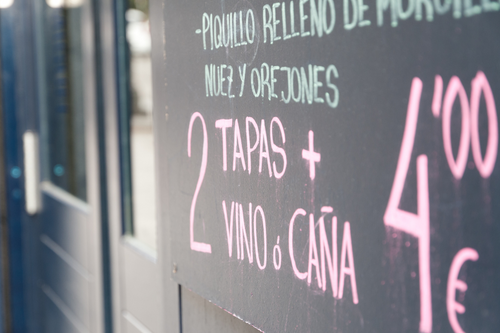 -PIQUILLO RELLENO DE MORCILLA
NUEZ Y OREJONES
2 TAPAS +
VINO ó CAÑA
4'00 €